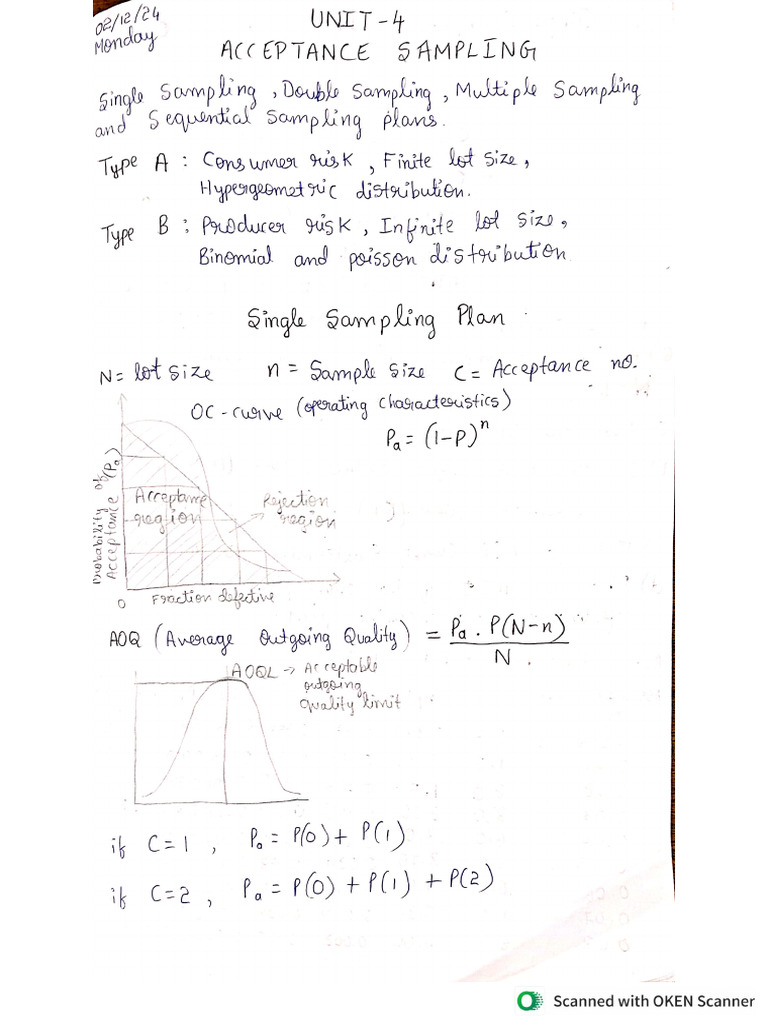 02/12/24
Monday
UNIT-4
ACCEPTANCE SAMPLING
Single Sampling, Double Sampling, Multiple Sampling
and Sequential Sampling plans.
Type A : Consumer risk, Finite lot size,
Hypergeometric distribution.
Type B : Producer risk, Infinite lot size,
Binomial and poisson distribution
Single Sampling Plan
N = lot size n = Sample size C = Acceptance no.
OC-curve (operating characteristics)
Pa = (1-P)^n
Probability of
Acceptance (Pa)
Acceptance
region
Rejection
region
0 Fraction defective
AOQ (Average Outgoing Quality) = Pa . P(N-n)
N .
AOQL → Acceptable
outgoing
Quality limit
if C=1 , Pa = P(0) + P(1)
if C=2 , Pa = P(0) + P(1) + P(2)
Scanned with OKEN Scanner